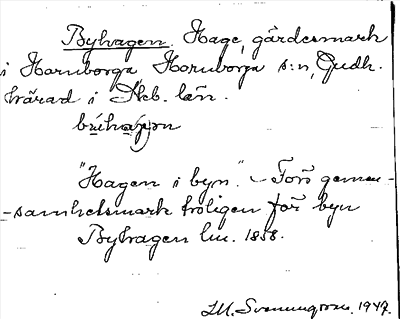 Byhagen. Hage, gärdesmark
i Hornborga, Hornborga s:n, Gudh.
härad i Skb. län.
"Hagen i byn." – Förr gemen-
-samhetsmark troligen för byn
Byhagen lm. 1858.
I. M. Svenungsson. 1947.